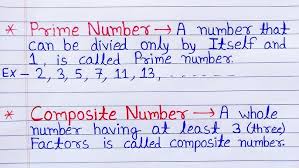 * Prime Number → A number that
can be divied only by Itself and
1, is called Prime number.
Ex - 2, 3, 5, 7, 11, 13, - - - - - - -
* Composite Number → A whole
number having at least 3 (three)
Factors is called composite number.